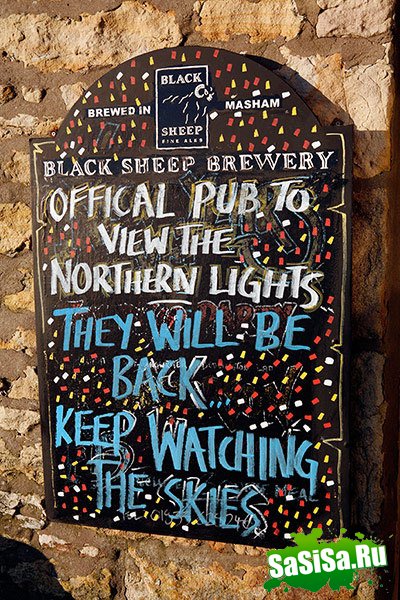 BLACK
SHEEP
FINE ALES
BREWED IN MASHAM
BLACK SHEEP BREWERY
OFFICAL PUB TO
VIEW THE
NORTHERN LIGHTS
THEY WILL BE
BACK...
KEEP WATCHING
THE SKIES
SaSiSa.Ru